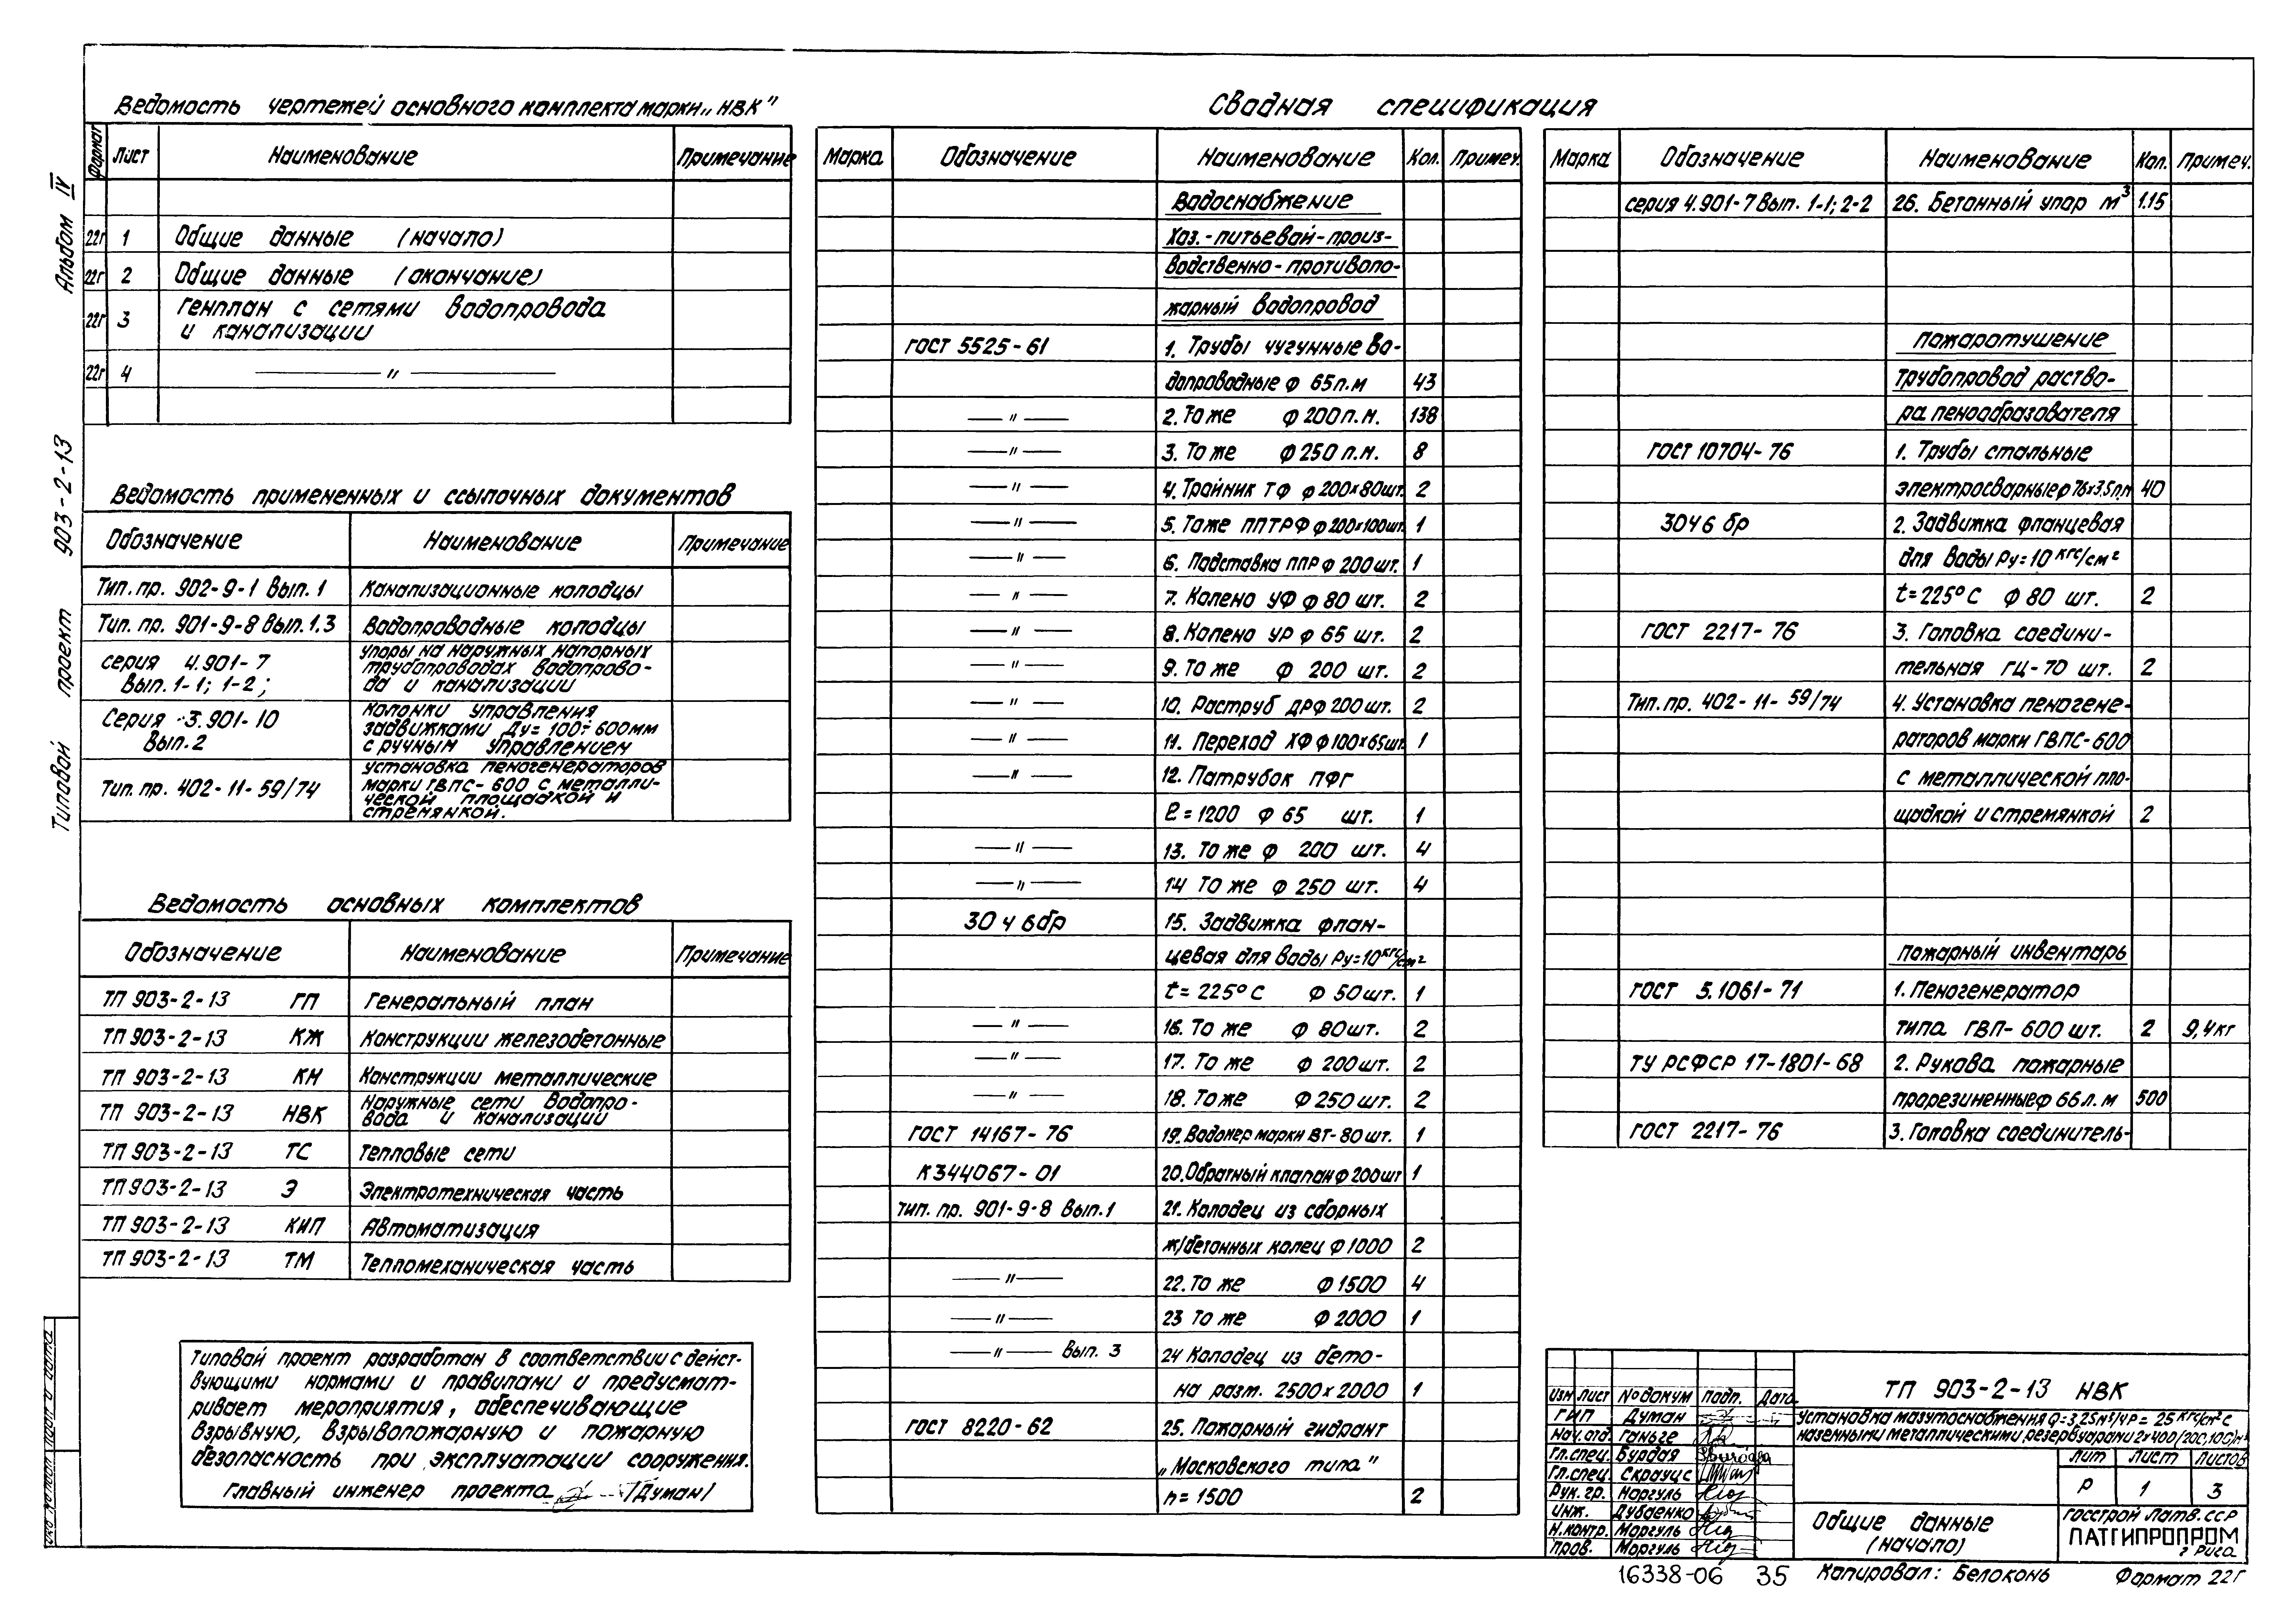 Альбом IV
Типовой проект 903-2-13
Ведомость чертежей основного комплекта марки „НВК"
Формат Лист Наименование Примечание
22г 1 Общие данные (начало)
22г 2 Общие данные (окончание)
22г 3 Генплан с сетями водопровода
и канализации
22г 4 — " —
Ведомость примененных и ссылочных документов
Обозначение Наименование Примечание
Тип. пр. 902-9-1 вып. 1 Канализационные колодцы
Тип. пр. 901-9-8 вып. 1.3 Водопроводные колодцы
серия 4.901-7
вып. 1-1; 1-2;
упоры на наружных напорных
трубопроводах водопрово-
да и канализации
Серия 3.901-10
вып. 2
Колонки управления
задвижками Ду=100÷600мм
с ручным управлением
Тип. пр. 402-11-59/74
установка пеногенераторов
марки ГВПС-600 с металли-
ческой площадкой и
стремянкой.
Ведомость основных комплектов
Обозначение Наименование Примечание
ТП 903-2-13 ГП Генеральный план
ТП 903-2-13 КЖ Конструкции железобетонные
ТП 903-2-13 КМ Конструкции металлические
ТП 903-2-13 НВК Наружные сети водопро-
вода и канализации
ТП 903-2-13 ТС Тепловые сети
ТП 903-2-13 Э Электротехническая часть
ТП 903-2-13 КИП Автоматизация
ТП 903-2-13 ТМ Тепломеханическая часть
Типовой проект разработан в соответствии с дейст-
вующими нормами и правилами и предусмат-
ривает мероприятия, обеспечивающие
взрывную, взрывопожарную и пожарную
безопасность при эксплуатации сооружения.
Главный инженер проекта /Думан/
Сводная спецификация
Марка Обозначение Наименование Кол. Примеч.
Водоснабжение
Хоз.-питьевой-произ-
водственно-противопо-
жарный водопровод
ГОСТ 5525-61 1. Трубы чугунные во-
допроводные ф 65 п.м 43
— " — 2. То же ф 200 п.м. 138
— " — 3. То же ф 250 п.м. 8
— " — 4. Тройник ТФ ф 200×80 шт. 2
— " — 5. То же ППТРФ ф 200×100 шт. 1
— " — 6. Подставка ППР ф 200 шт. 1
— " — 7. Колено УФ ф 80 шт. 2
— " — 8. Колено УР ф 65 шт. 2
— " — 9. То же ф 200 шт. 2
— " — 10. Раструб ДРФ 200 шт. 2
— " — 11. Переход ХФ ф 100×65 шт. 1
— " — 12. Патрубок ПФГ
ℓ=1200 ф 65 шт. 1
— " — 13. То же ф 200 шт. 4
— " — 14 То же ф 250 шт. 4
30ч6бр 15. Задвижка флан-
цевая для воды Ру=10 кгс/см²
t=225°С ф 50 шт. 1
— " — 16. То же ф 80 шт. 2
— " — 17. То же ф 200 шт. 2
— " — 18. То же ф 250 шт. 2
ГОСТ 14167-76 19. Водомер марки ВТ-80 шт. 1
К344067-01 20. Обратный клапан ф 200 шт 1
тип. пр. 901-9-8 вып. 1 21. Колодец из сборных
ж/бетонных колец ф 1000 2
— " — 22. То же ф 1500 4
— " — 23 То же ф 2000 1
— " — вып. 3 24 Колодец из бето-
на разм. 2500×2000 1
ГОСТ 8220-62 25. Пожарный гидрант
„Московского типа"
h=1500 2
Марка Обозначение Наименование Кол. Примеч.
серия 4.901-7 вып. 1-1; 2-2 26. Бетонный упор м³ 1.15
Пожаротушение
Трубопровод раство-
ра пенообразователя
ГОСТ 10704-76 1. Трубы стальные
электросварные ф 76×3,5 п.м 40
30ч6бр 2. Задвижка фланцевая
для воды Ру=10 кгс/см²
t=225°С ф 80 шт. 2
ГОСТ 2217-76 3. Головка соедини-
тельная ГЦ-70 шт. 2
Тип. пр. 402-11-59/74 4. Установка пеногене-
раторов марки ГВПС-600
с металлической пло-
щадкой и стремянкой 2
Пожарный инвентарь
ГОСТ 5.1061-71 1. Пеногенератор
типа ГВП-600 шт. 2 9,4 кг
ТУ РСФСР 17-1801-68 2. Рукова пожарные
прорезиненные ф 66 п.м 500
ГОСТ 2217-76 3. Головка соединитель-
Изм Лист № докум Подп. Дата
ГИП Думан
Нач. отд. Ганьге
Гл. спец. Бурдая
Гл. спец. Скрауцс
Рук. гр. Моргуль
Инж. Дубаенко
Н. контр. Моргуль
Пров. Моргуль
ТП 903-2-13 НВК
Установка мазутоснабжения Q=3,25м³/ч Р=25 кгс/см² с
наземными металлическими резервуарами 2×400/200,100/м³
Лит Лист Листов
Р 1 3
Общие данные
(начало)
Госстрой Латв. ССР
ЛАТГИПРОПРОМ
г Рига
16338-06 35 Копировал: Белоконь Формат 22Г